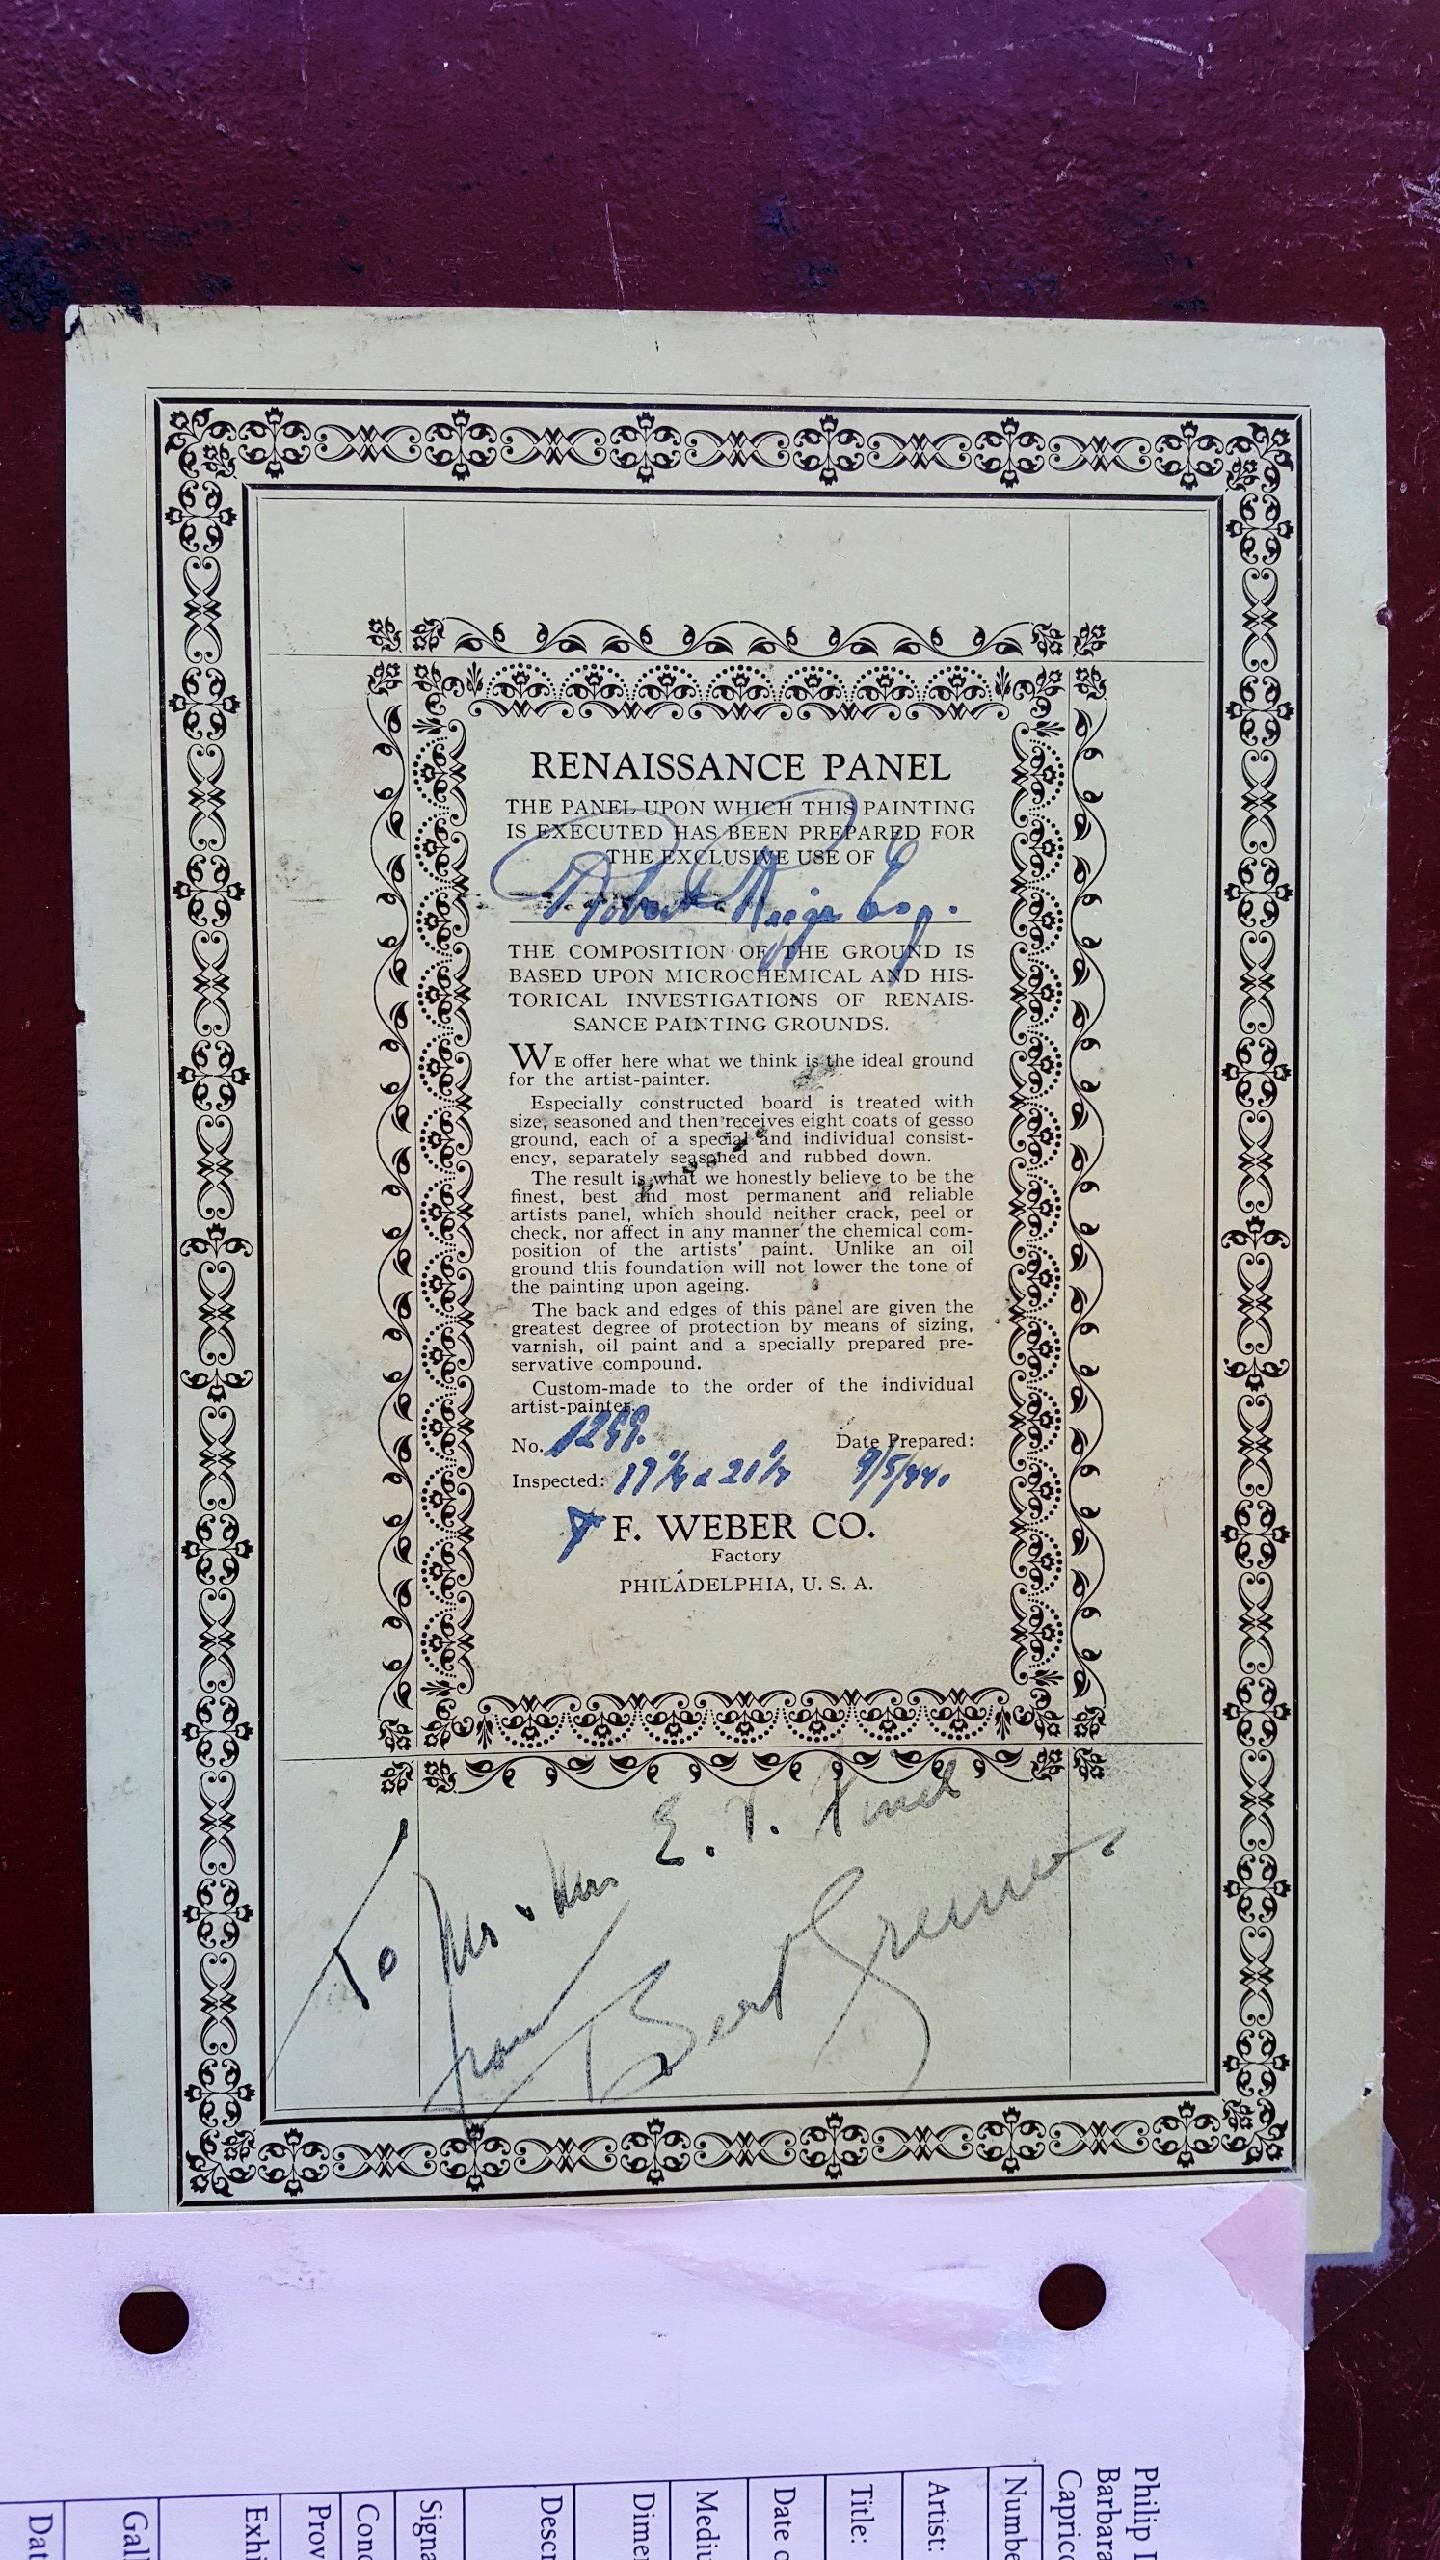 RENAISSANCE PANEL
THE PANEL UPON WHICH THIS PAINTING
IS EXECUTED HAS BEEN PREPARED FOR
THE EXCLUSIVE USE OF
Robert Esq.
THE COMPOSITION OF THE GROUND IS
BASED UPON MICROCHEMICAL AND HIS-
TORICAL INVESTIGATIONS OF RENAIS-
SANCE PAINTING GROUNDS.
WE offer here what we think is the ideal ground
for the artist-painter.
Especially constructed board is treated with
size, seasoned and then receives eight coats of gesso
ground, each of a special and individual consist-
ency, separately seasoned and rubbed down.
The result is what we honestly believe to be the
finest, best and most permanent and reliable
artists panel, which should neither crack, peel or
check, nor affect in any manner the chemical com-
position of the artists' paint. Unlike an oil
ground this foundation will not lower the tone of
the painting upon ageing.
The back and edges of this panel are given the
greatest degree of protection by means of sizing,
varnish, oil paint and a specially prepared pre-
servative compound.
Custom-made to the order of the individual
artist-painter.
No. 1299. Date Prepared:
Inspected: 9/5/44.
F. WEBER CO.
Factory
PHILADELPHIA, U. S. A.
To Mr & Mrs E. T.
from Bert
Philip
Barbara
Numbe
Artist:
Title:
Date
Mediu
Dimen
Descr
Signa
Conc
Prov
Exhi
Gall
Dat